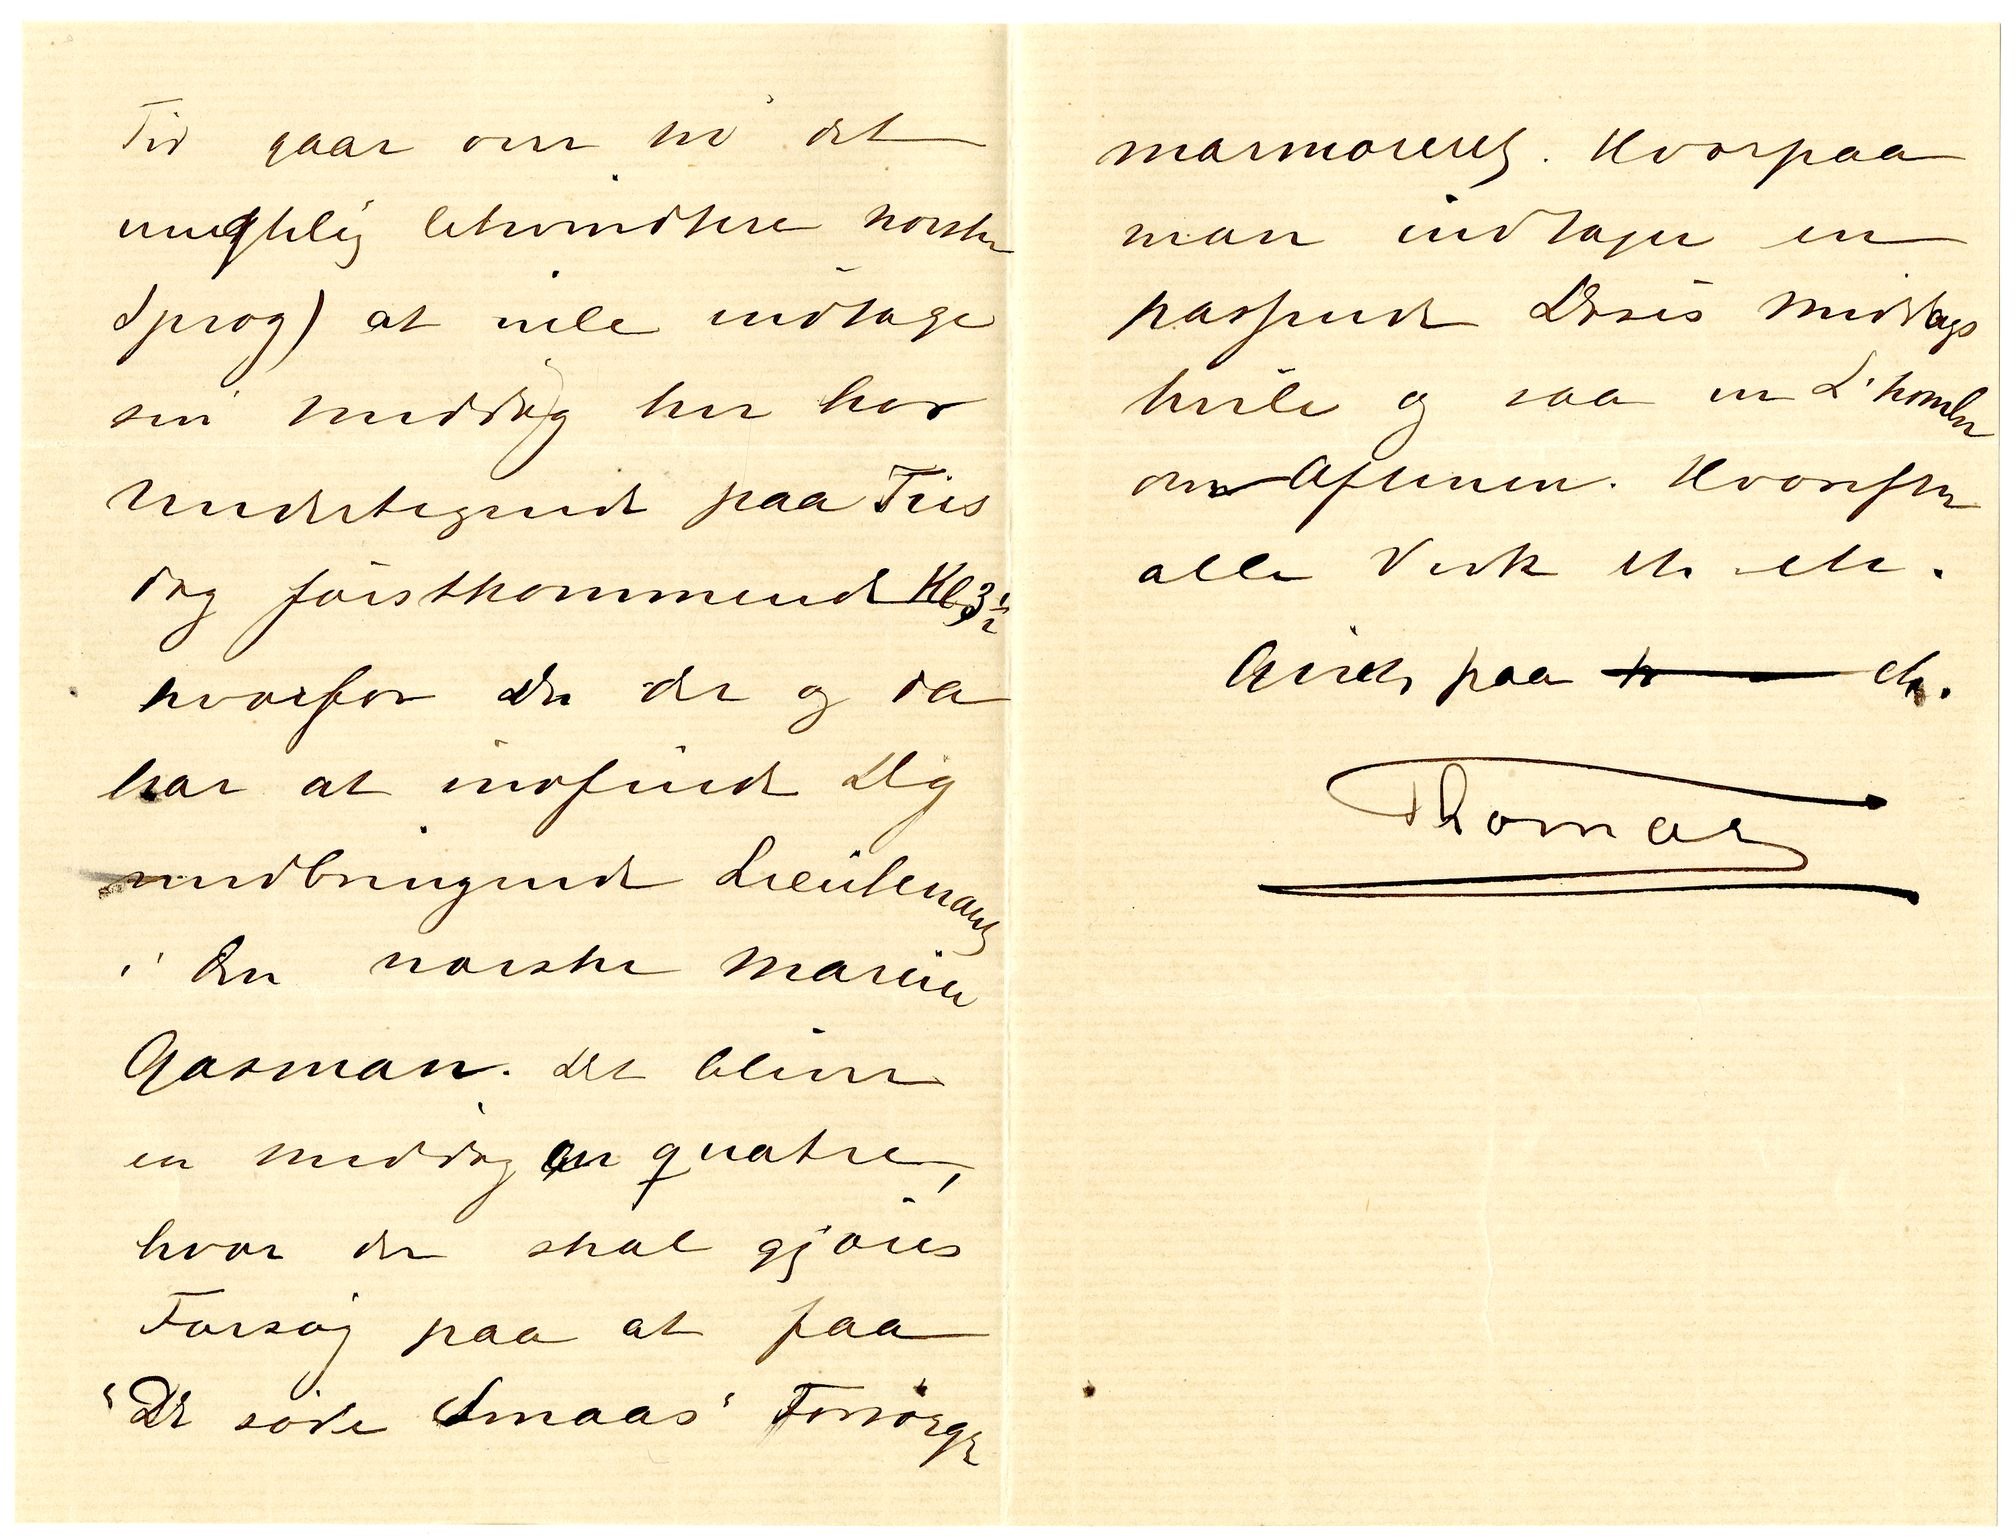 Tid gaar over til det
umaghlig letvindtere norske
Sprog) at ville indtage
sin Middag her hos
Undertegnede paa Tirs
dag förstkommende Kl 3½
hvorfor Du der og da
har at indfinde Dig
medbringende Lieutenant
i den norske Marine
Gasman. Det bliver
en Middag en quatre,
hvor der skal gjöres
Forsög paa at faa
"De söde Smaas" Forsörger
marmoreret. Hvorpaa
man indtager en
passende Dosis Middags
hvile og saa en L'hombre
om Aftenen. Hvorefter
alle Vask etc etc.
Girds paa etc.
Thomas